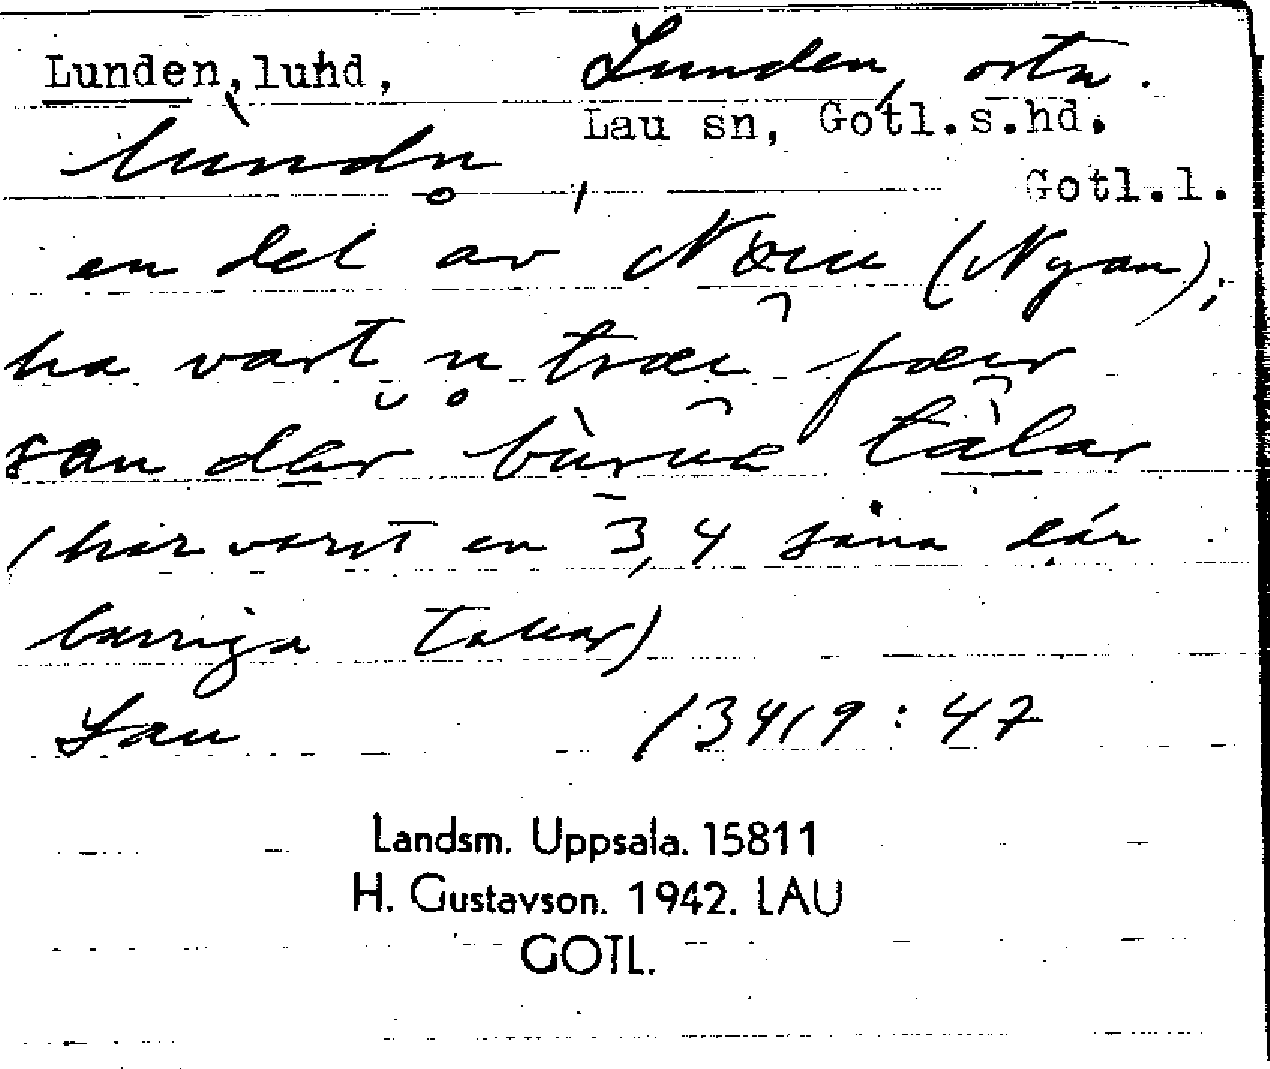 Lunden, lund, Lunden, ortn.
Lau sn, Gotl.s.hd.
lùndn̥, Gotl.l.
en del av (Nyan),
ha vart n̥ træi fæir
san där tàlar
(har varit en 3, 4 såna där
barriga tallar)
Lau 13419:47
Landsm. Uppsala. 15811
H. Gustavson. 1942. LAU
GOTL.